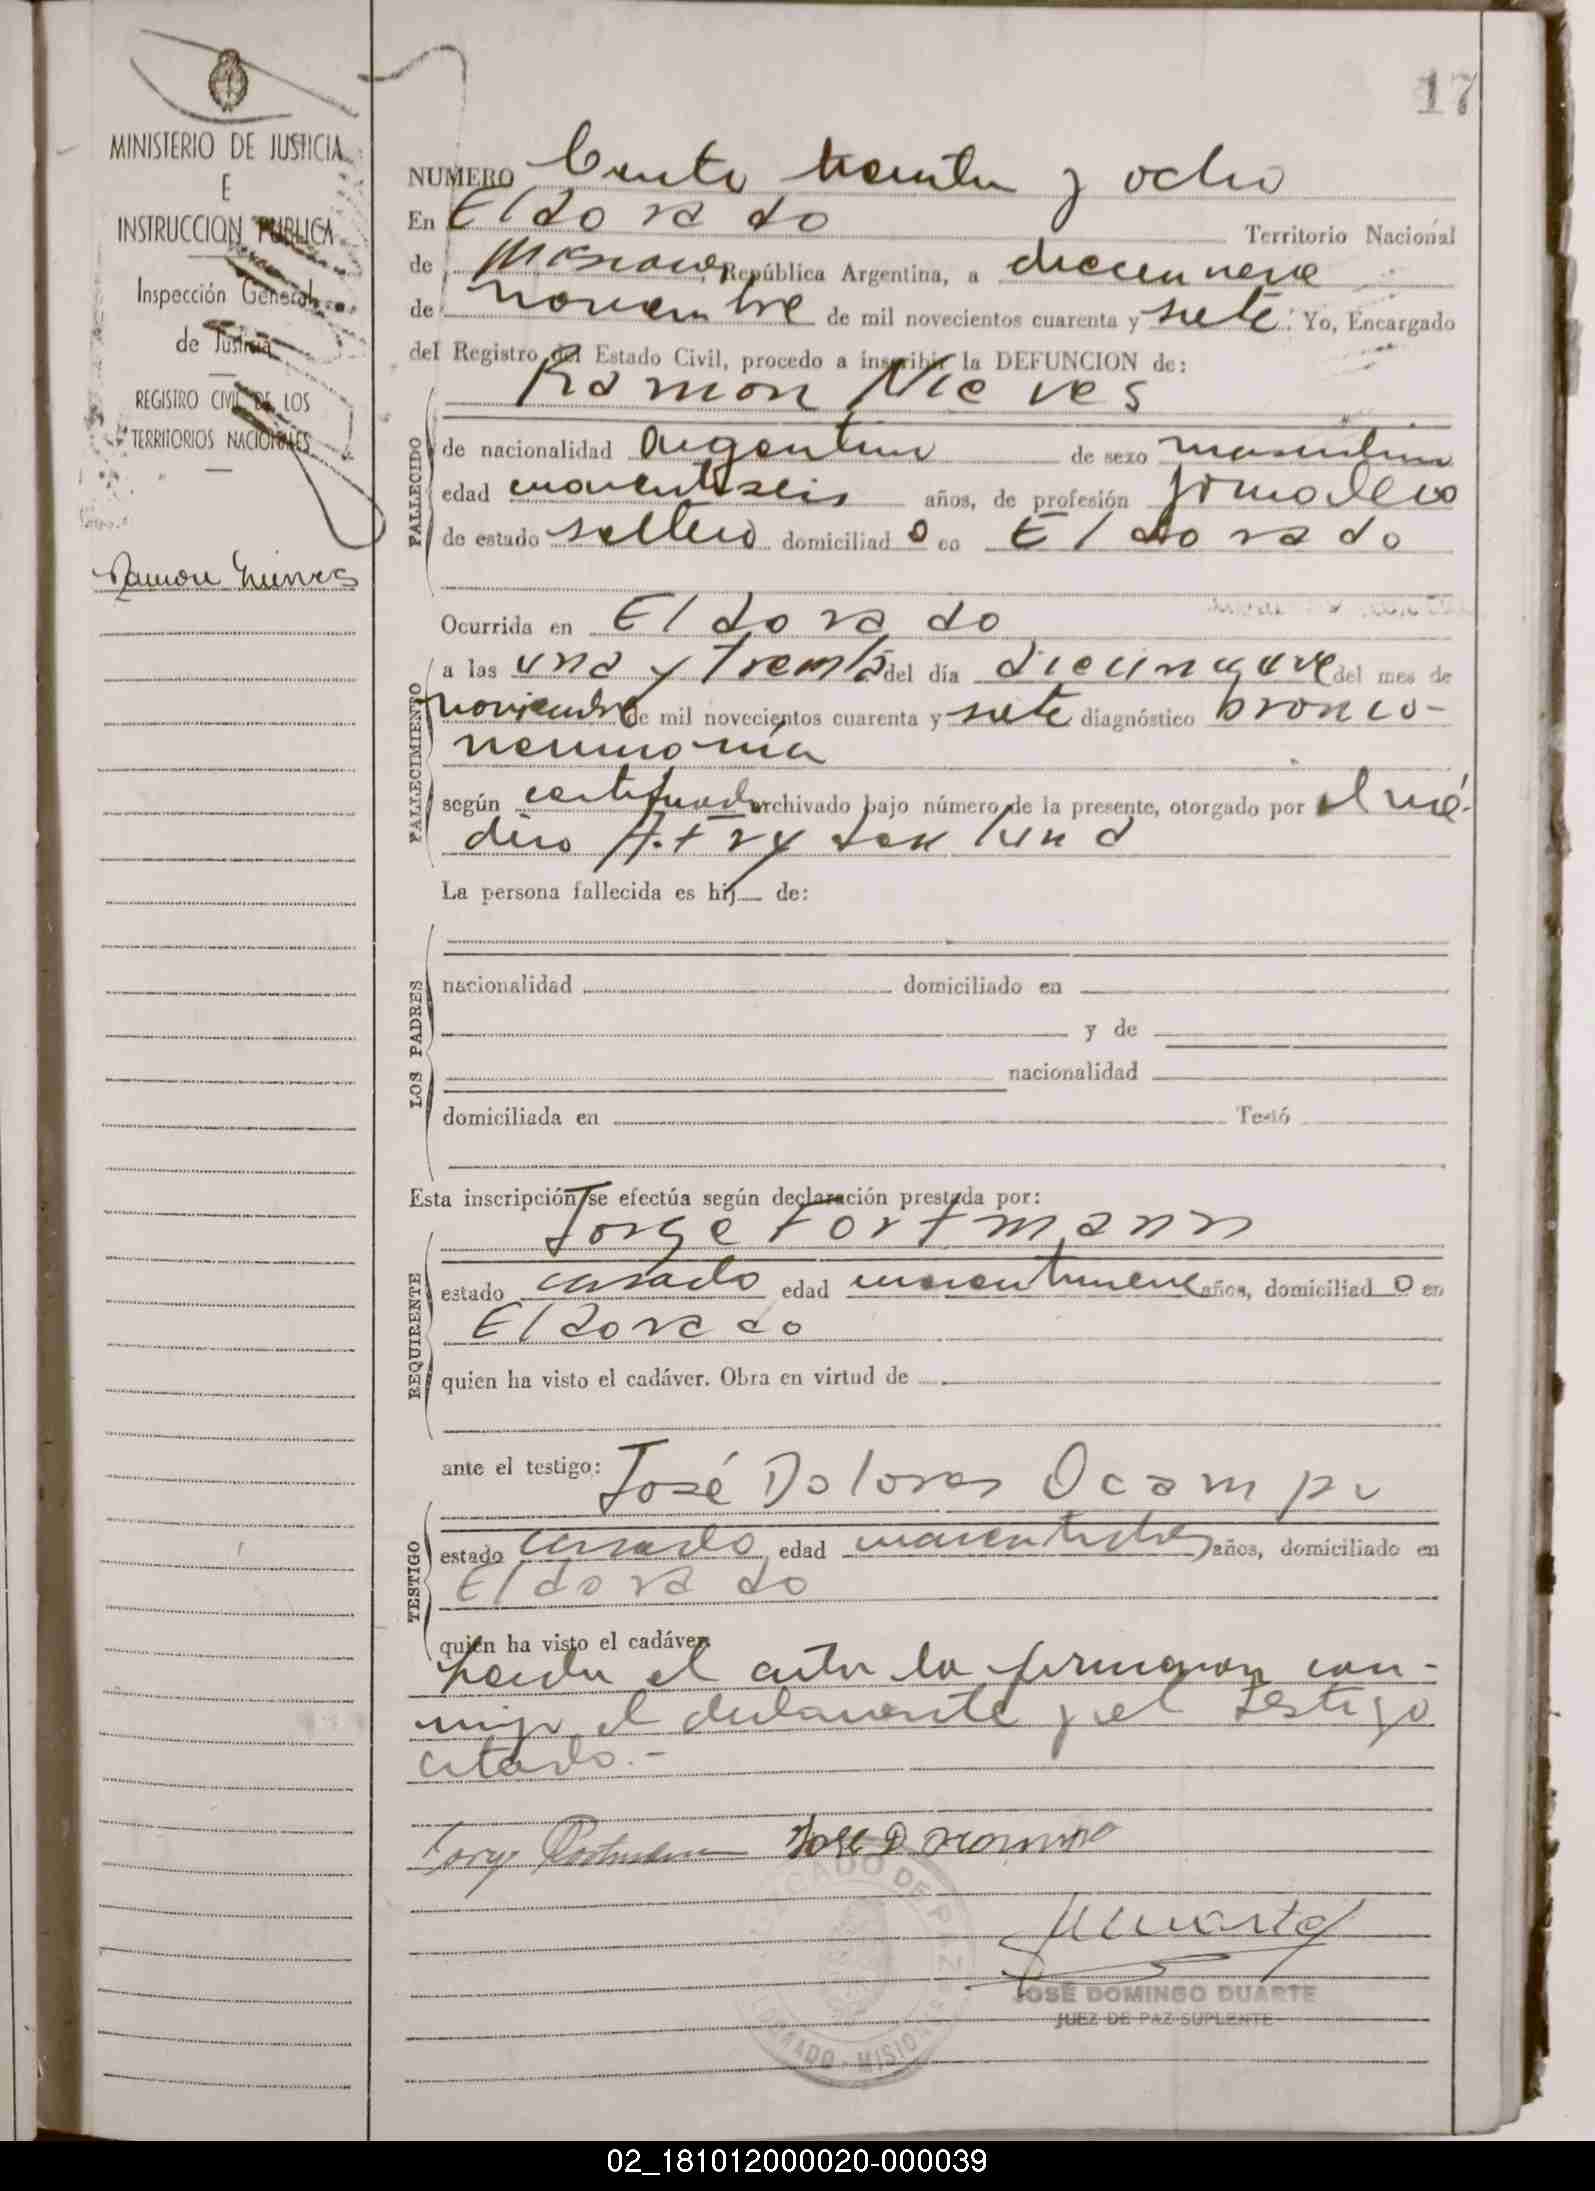 17
MINISTERIO DE JUSTICIA
E
INSTRUCCION PUBLICA
Inspección General
de Justicia
REGISTRO CIVIL DE LOS
TERRITORIOS NACIONALES
Ramon Nieves
NUMERO Ciento treinta y ocho
En Eldorado Territorio Nacional
de Misiones, República Argentina, a diecinueve
de noviembre de mil novecientos cuarenta y siete. Yo, Encargado
del Registro del Estado Civil, procedo a inscribir la DEFUNCION de:
Ramon Nieves
FALLECIDO
de nacionalidad argentino de sexo masculino
edad cuarentiseis años, de profesión jornalero
de estado soltero domiciliado en Eldorado
Ocurrida en Eldorado
FALLECIMIENTO
a las una y treinta del día diecinueve del mes de
noviembre de mil novecientos cuarenta y siete diagnóstico bronco-
neumonía
según certificado archivado bajo número de la presente, otorgado por el mé-
dico
La persona fallecida es hij de:
LOS PADRES
nacionalidad domiciliado en
y de
nacionalidad
domiciliada en Testó
Esta inscripción se efectúa según declaración prestada por:
Jorge Fortmann
REQUIRENTE
estado casado edad cuarentinueve años, domiciliado en
Eldorado
quien ha visto el cadáver. Obra en virtud de
ante el testigo: José Dolores Ocampo
TESTIGO
estado casado edad años, domiciliado en
Eldorado
quien ha visto el cadáver.
Leída el acta la firmaron con-
migo el declarante y el testigo
citado.-
Jorge Fortmann José D. Ocampo
JUZGADO DE PAZ
ELDORADO - MISIONES
JOSÉ DOMINGO DUARTE
JUEZ DE PAZ SUPLENTE
02_181012000020-000039